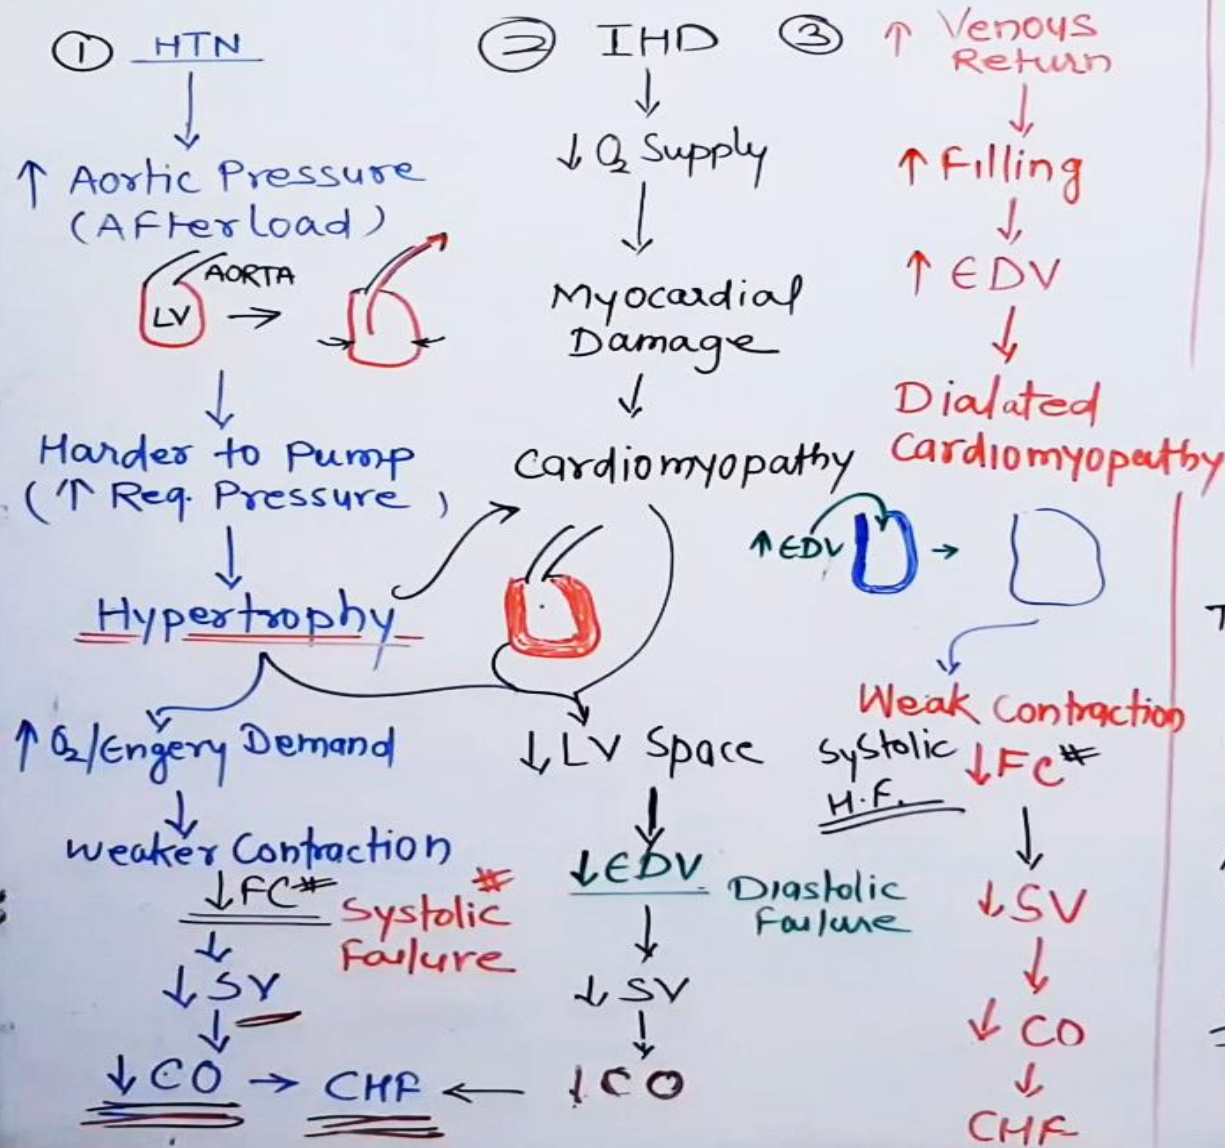 ① HTN
↑ Aortic Pressure
(Afterload)
AORTA
LV
Harder to Pump
(↑ Req. Pressure)
Hypertrophy
↑ O2/Engery Demand
Weaker Contraction
↓FC#
Systolic #
Failure
↓SV
↓CO → CHF ←
② IHD
↓ O2 Supply
Myocardial
Damage
Cardiomyopathy
↓LV Space
↓EDV
Diastolic
Failure
↓SV
↓CO
③ ↑ Venous
Return
↑ Filling
↑ EDV
Dialated
Cardiomyopathy
↑EDV →
Weak Contraction
Systolic
H.F.
↓FC#
↓SV
↓CO
CHF